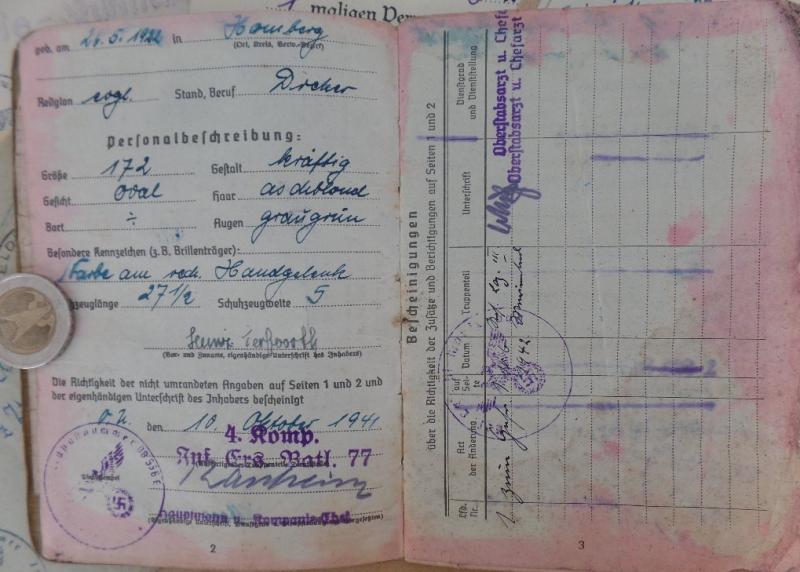 maligen
geb. am 26.5.1922 in Homberg
(Ort, Kreis, Verw.-Bezirk)
Religion evgl. Stand, Beruf Dreher
Personalbeschreibung:
Größe 172 Gestalt kräftig
Gesicht oval Haar aschblond
Bart ÷ Augen graugrün
Besondere Kennzeichen (z. B. Brillenträger):
Narbe am rech. Handgelenk
zeuglänge 27 1/2 Schuhzeugweite 5
(Vor- und Zuname, eigenhändige Unterschrift des Inhabers)
Die Richtigkeit der nicht umrandeten Angaben auf Seiten 1 und 2 und
der eigenhändigen Unterschrift des Inhabers bescheinigt
O.U. den 10. Oktober 1941
4. Komp.
Inf. Ers. Batl. 77
Hauptmann u. Kompanie-Chef
2
Bescheinigungen
über die Richtigkeit der Zusätze und Berichtigungen auf Seiten 1 und 2
Lfd. Nr.
Art der Änderung
auf Seite
Datum
Truppenteil
Unterschrift
Dienstgrad und Dienststellung
1 zum
1942
Oberstabsarzt u. Chefarzt
Oberstabsarzt u. Chefarzt
3